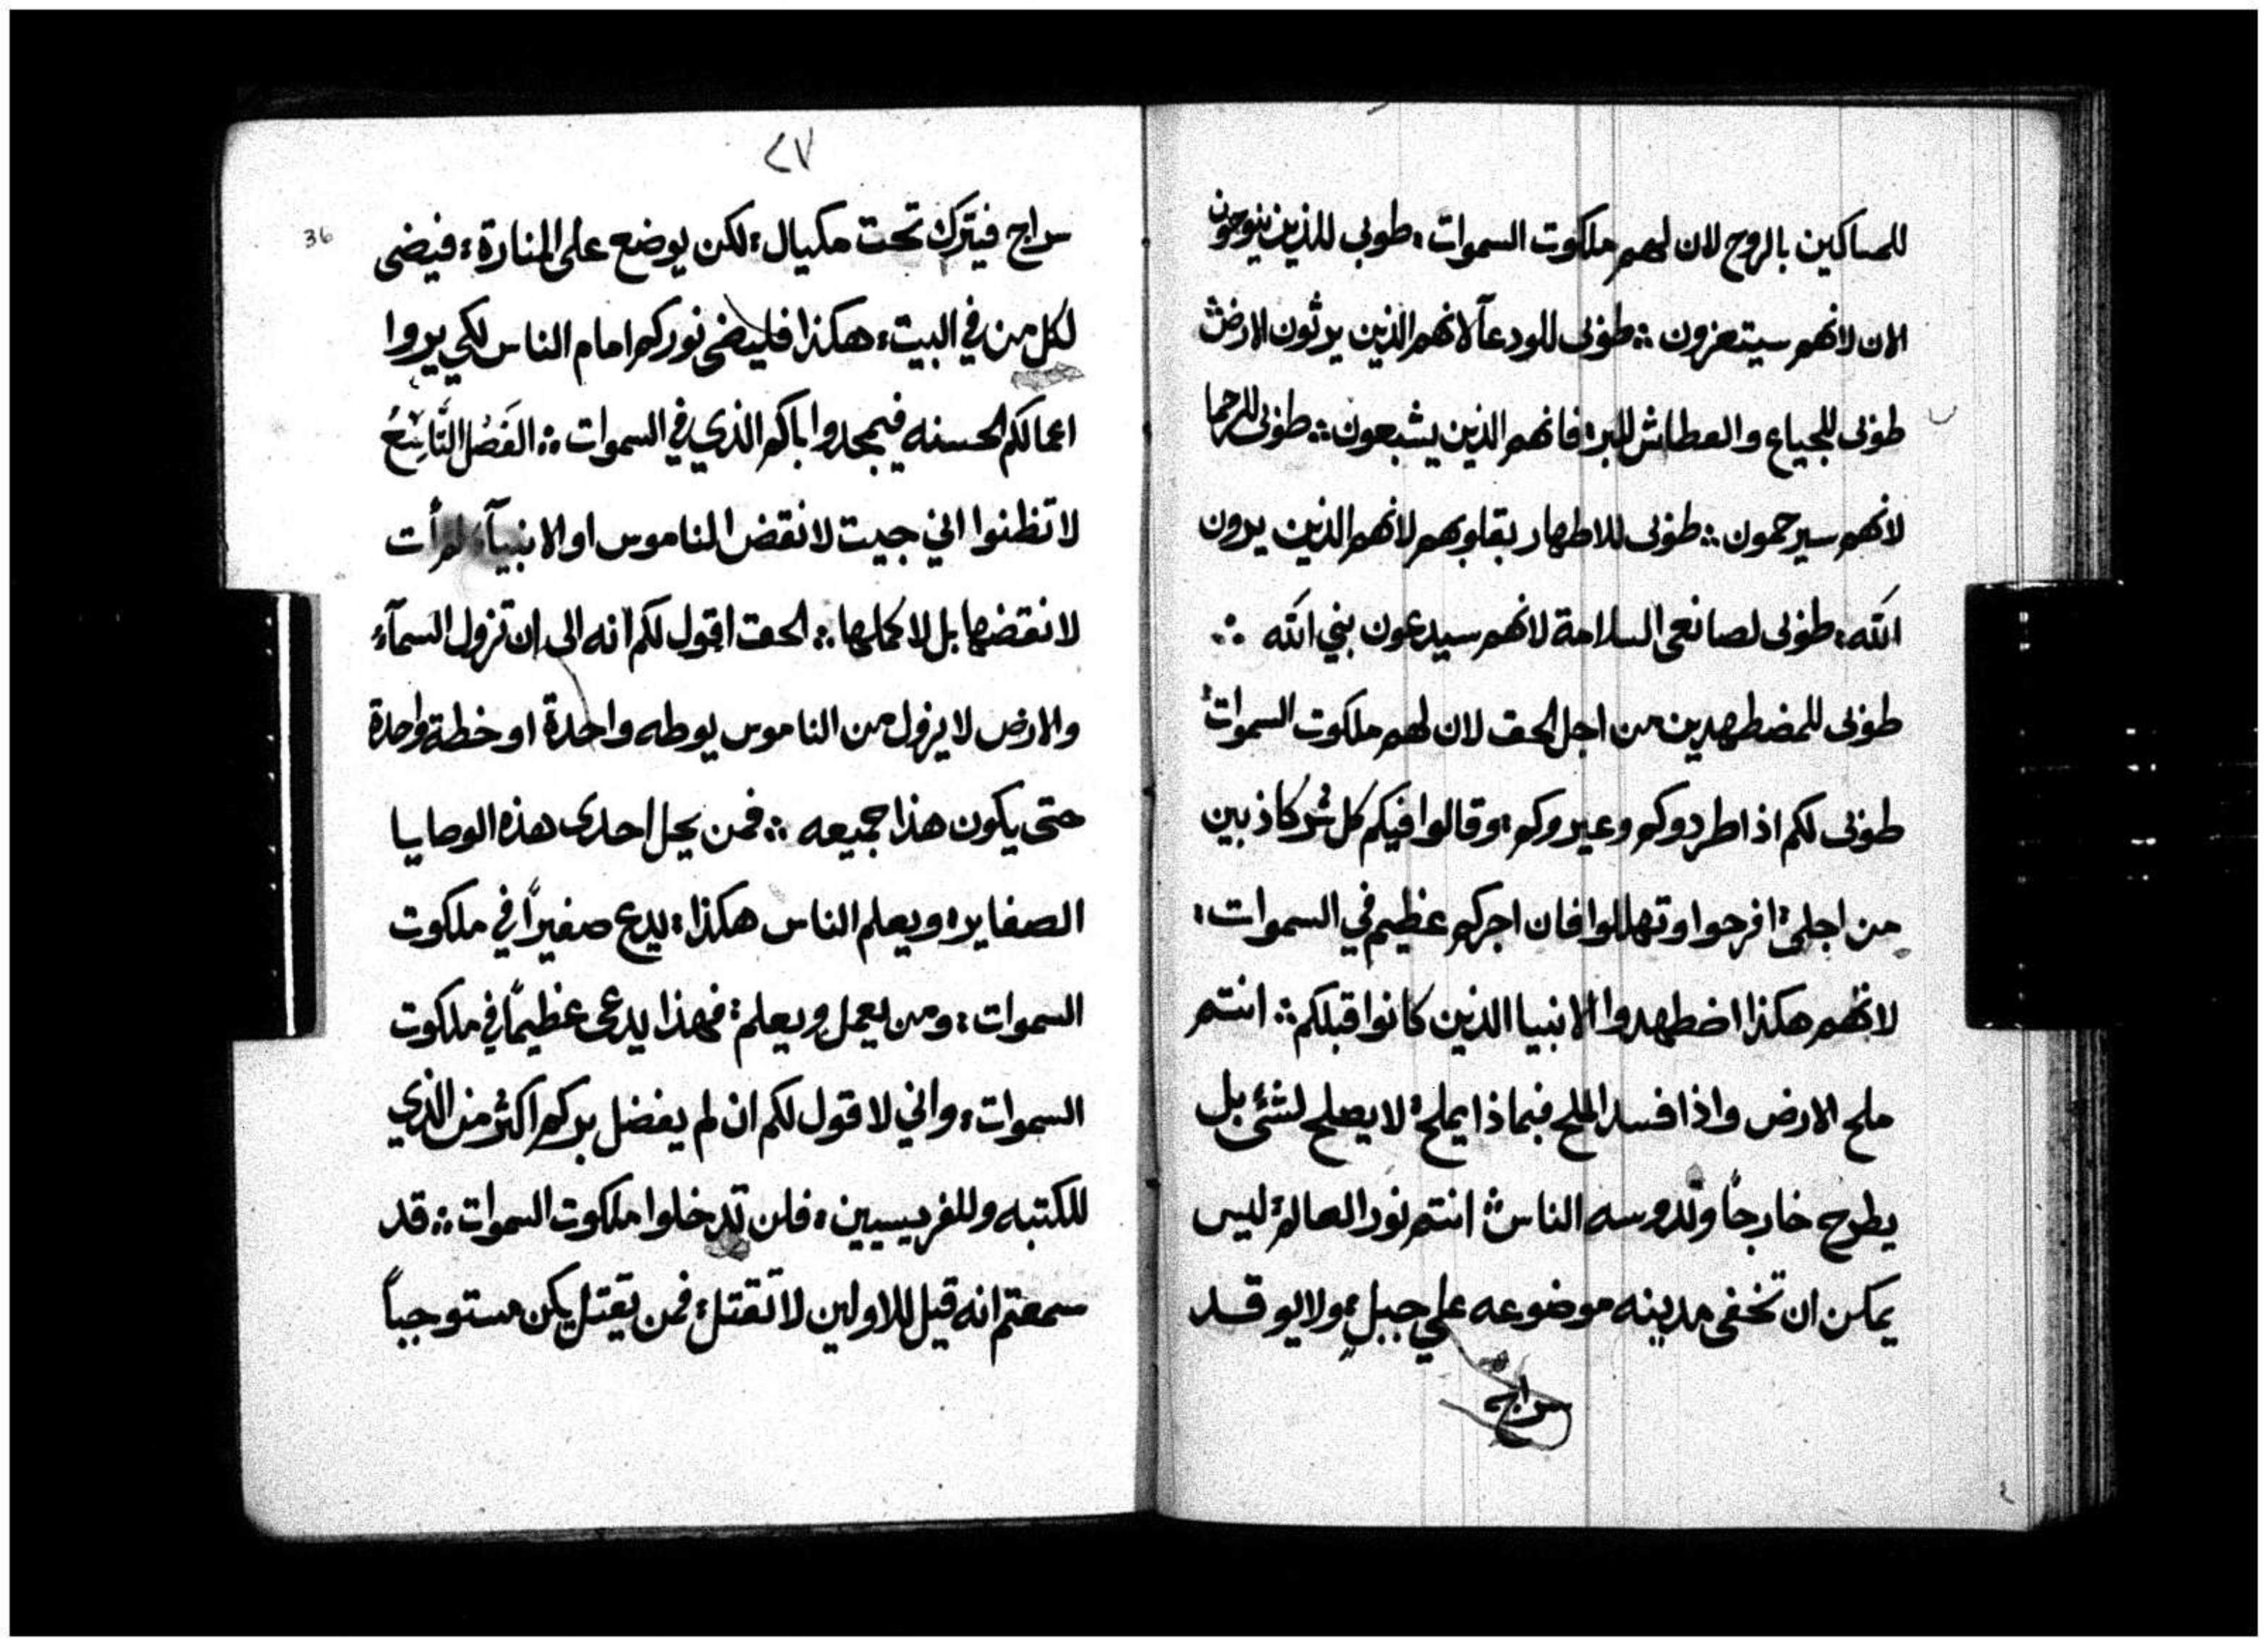 للمساكين بالروح لان لهم ملكوت السموات ؛ طوبى للذين ينوحون
الان لانهم سيتعزون ؛؛ طوبى للودعآ لانهم الذين يرثون الارض
طوبى للجياع والعطاش للبر فانهم الذين يشبعون ؛؛ طوبى للرحما
لانهم سيرحمون ؛؛ طوبى للاطهار بقلوبهم لانهم الذين يرون
الله ؛ طوبى لصانعى السلامة لانهم سيدعون بني الله ؛؛
طوبى للمضطهدين من اجل الحق لان لهم ملكوت السموات
طوبى لكم اذا طردوكم وعيروكم ؛ وقالوا فيكم كل شر كاذبين
من اجلى ؛ افرحوا وتهللوا فان اجركم عظيم في السموات ؛
لانهم هكذا اضطهدوا الانبيا الذين كانوا قبلكم ؛؛ انتم
ملح الارض واذا فسد الملح فبماذا يملح ؛ لا يصلح لشئ بل
يطرح خارجاً وتدوسه الناس ؛؛ انتم نور العالم ؛ ليس
يمكن ان تخفى مدينه موضوعه على جبل ؛ ولا يوقد
سراج
٢٧
36
سراج فيترك تحت مكيال ؛ لكن يوضع على المنارة ؛ فيضى
لكل من في البيت ؛ هكذا فليضى نوركم امام الناس لكي يروا
اعمالكم الحسنه فيمجدوا اباكم الذي في السموات ؛؛ الفَصْل التَّاسِعُ
لا تظنوا اني جيت لانقض الناموس او الانبيآء لم أت
لانقضها بل لاكملها ؛؛ الحق اقول لكم انه الى ان تزول السمآء
والارض لا يزول من الناموس يوطه واحدة او خطة واحدة
حتى يكون هذا جميعه ؛؛ فمن يحل احدى هذه الوصايا
الصغاير ؛ ويعلم الناس هكذا ؛ يدع صغيراً في ملكوت
السموات ؛ ومن يعمل ويعلم ؛ فهذا يدعى عظيماً في ملكوت
السموات ؛ واني لاقول لكم ان لم يفضل بركم اكثر من الذي
للكتبه وللفريسيين ؛ فلن تدخلوا ملكوت السموات ؛؛ قد
سمعتم انه قيل للاولين لا تقتل ؛ فمن يقتل يكن مستوجباً